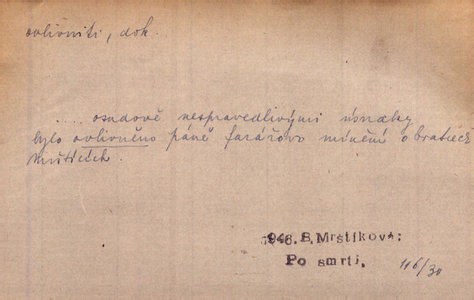 ovlivniti, dok.
.... osudově nespravedlivými úsudky
bylo ovlivněno páně farářovo mínění o bratřech
Mrštících.
1946. B. Mrštíková:
Po smrti. 116/30